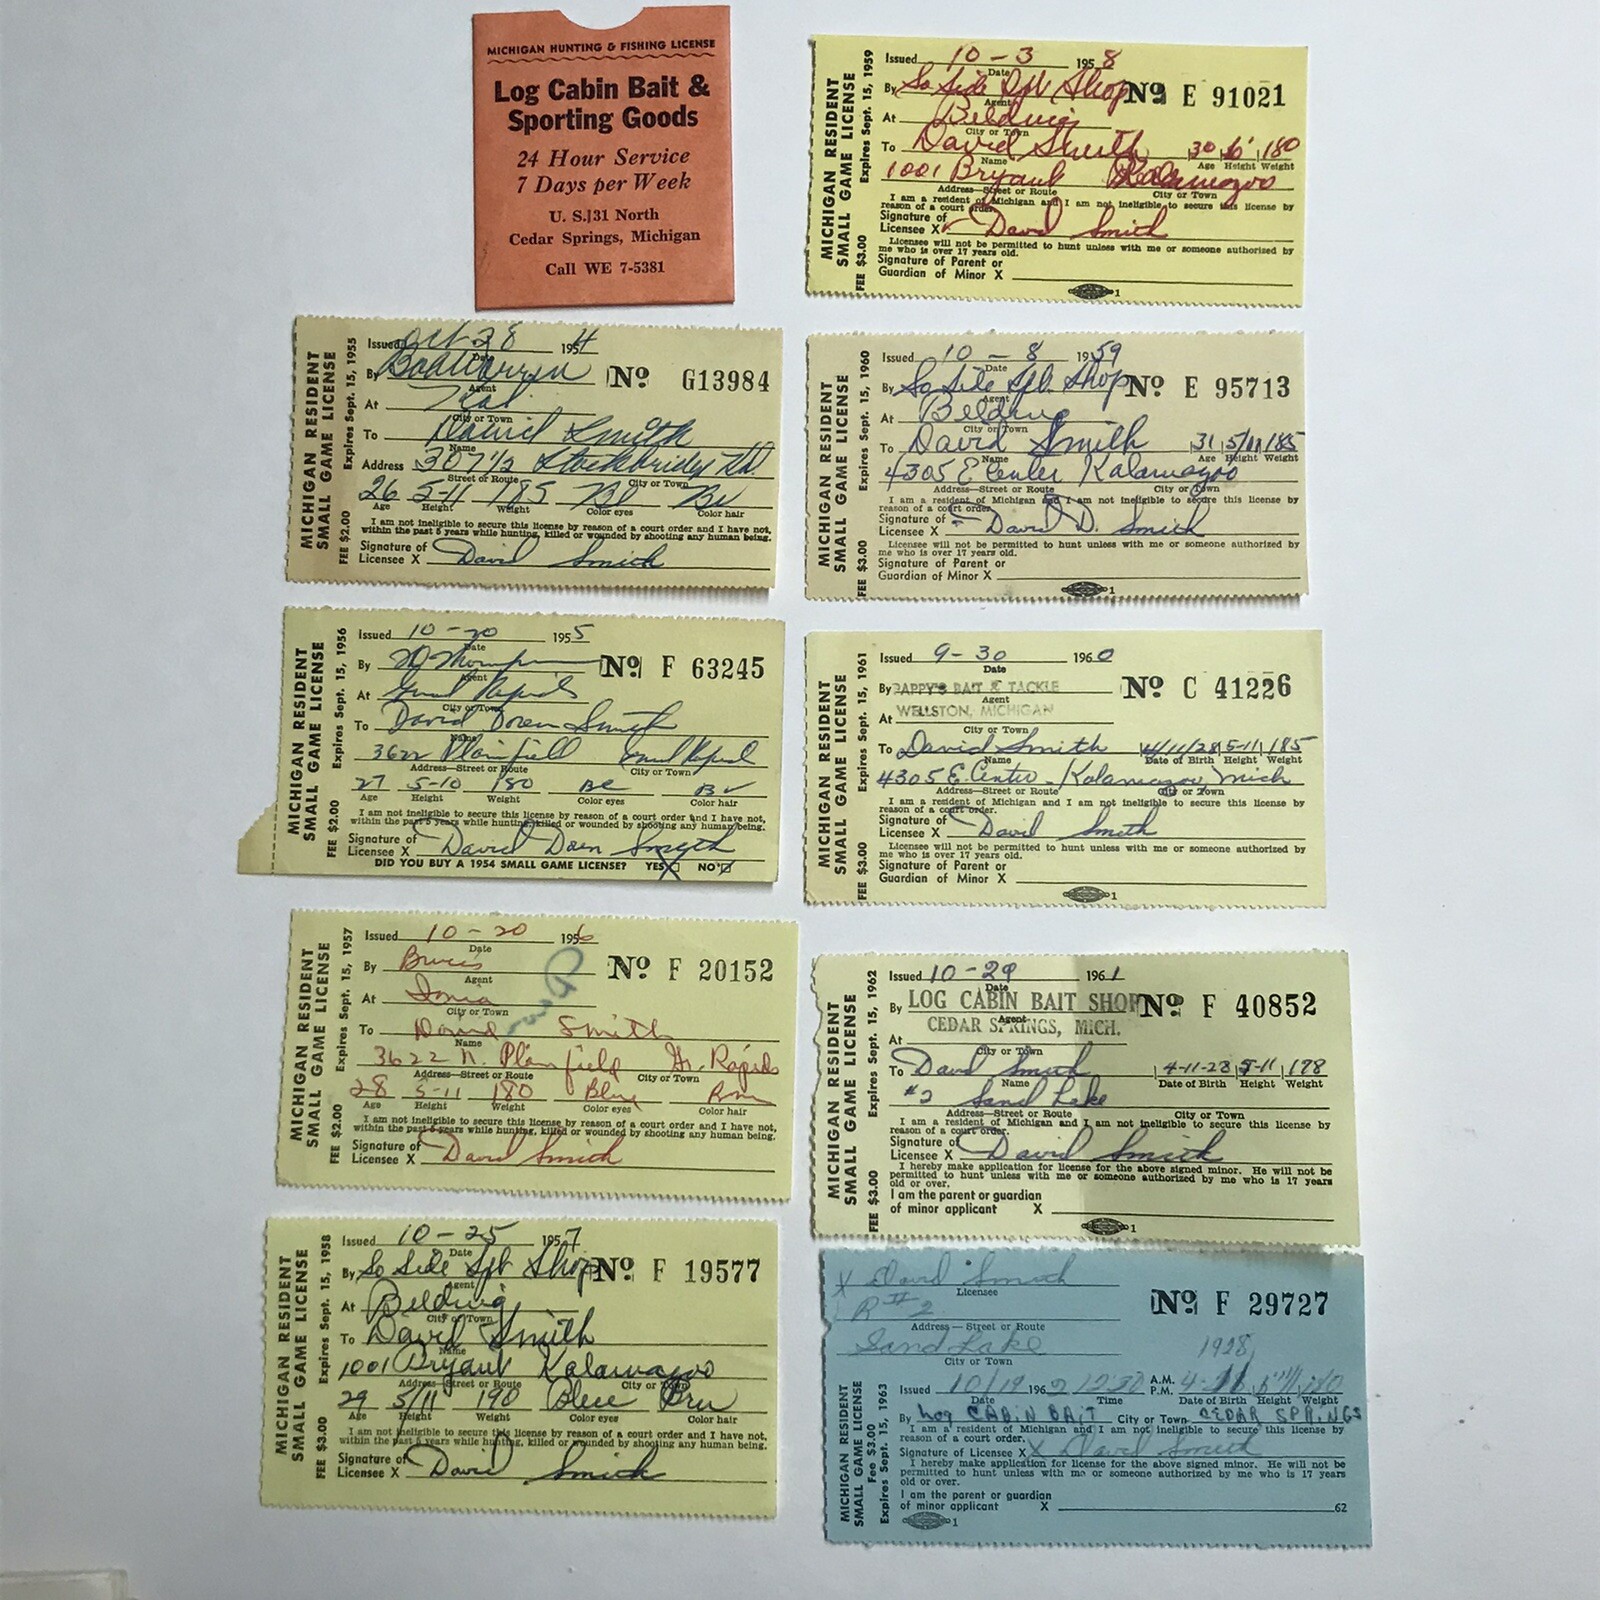 MICHIGAN HUNTING & FISHING LICENSE
Log Cabin Bait &
Sporting Goods
24 Hour Service
7 Days per Week
U. S. 131 North
Cedar Springs, Michigan
Call WE 7-5381
MICHIGAN RESIDENT
SMALL GAME LICENSE
Expires Sept. 15, 1959
FEE $3.00
Issued 10-3 1958
Date
By So Side Spt Shop No E 91021
Agent
At Belding
City or Town
To David Smith 30 6' 180
Name Age Height Weight
1001 Bryant Kalamazoo
Address—Street or Route City or Town
I am a resident of Michigan and I am not ineligible to secure this license by
reason of a court order.
Signature of
Licensee X David Smith
Licensee will not be permitted to hunt unless with me or someone authorized by
me who is over 17 years old.
Signature of Parent or
Guardian of Minor X
1
MICHIGAN RESIDENT
SMALL GAME LICENSE
Expires Sept. 15, 1955
FEE $2.00
Issued Oct 28 1954
Date
By No G13984
Agent
At Kal
City or Town
To David Smith
Name
Address 307 1/2 Stockbridge
Street or Route City or Town
26 5-11 185 Bl Br
Age Height Weight Color eyes Color hair
I am not ineligible to secure this license by reason of a court order and I have not,
within the past 5 years while hunting, killed or wounded by shooting any human being.
Signature of
Licensee X David Smith
MICHIGAN RESIDENT
SMALL GAME LICENSE
Expires Sept. 15, 1960
FEE $3.00
Issued 10-8 1959
Date
By So Side Spt. Shop No E 95713
Agent
At Belding
City or Town
To David Smith 31 5/11 185
Name Age Height Weight
4305 E Center Kalamazoo
Address—Street or Route City or Town
I am a resident of Michigan and I am not ineligible to secure this license by
reason of a court order.
Signature of
Licensee X David D. Smith
Licensee will not be permitted to hunt unless with me or someone authorized by
me who is over 17 years old.
Signature of Parent or
Guardian of Minor X
1
MICHIGAN RESIDENT
SMALL GAME LICENSE
Expires Sept. 15, 1956
FEE $2.00
Issued 10-20 1955
Date
By No F 63245
Agent
At Grand Rapids
City or Town
To David Doren Smith
Name
3622 Plainfield Grand Rapids
Address—Street or Route City or Town
27 5-10 180 Bl Br
Age Height Weight Color eyes Color hair
I am not ineligible to secure this license by reason of a court order and I have not,
within the past 5 years while hunting, killed or wounded by shooting any human being.
Signature of
Licensee X David Smith
DID YOU BUY A 1954 SMALL GAME LICENSE? YES NO
MICHIGAN RESIDENT
SMALL GAME LICENSE
Expires Sept. 15, 1961
FEE $3.00
Issued 9-30 1960
Date
By PAPPY'S BAIT & TACKLE No C 41226
Agent
At WELLSTON, MICHIGAN
City or Town
To David Smith 4/11/28 5-11 185
Name Date of Birth Height Weight
4305 E. Center Kalamazoo Mich
Address—Street or Route City or Town
I am a resident of Michigan and I am not ineligible to secure this license by
reason of a court order.
Signature of
Licensee X David Smith
Licensee will not be permitted to hunt unless with me or someone authorized by
me who is over 17 years old.
Signature of Parent or
Guardian of Minor X
1
MICHIGAN RESIDENT
SMALL GAME LICENSE
Expires Sept. 15, 1957
FEE $2.00
Issued 10-20 1956
Date
By No F 20152
Agent
At Ionia
City or Town
To David Smith
Name
3622 N. Plainfield Gr. Rapids
Address—Street or Route City or Town
28 5-11 180 Blue Brn
Age Height Weight Color eyes Color hair
I am not ineligible to secure this license by reason of a court order and I have not,
within the past 5 years while hunting, killed or wounded by shooting any human being.
Signature of
Licensee X David Smith
MICHIGAN RESIDENT
SMALL GAME LICENSE
Expires Sept. 15, 1962
FEE $3.00
Issued 10-29 1961
Date
By LOG CABIN BAIT SHOP No F 40852
Agent
CEDAR SPRINGS, MICH.
At
City or Town
To David Smith 4-11-28 5-11 178
Name Date of Birth Height Weight
#2 Sand Lake
Address—Street or Route City or Town
I am a resident of Michigan and I am not ineligible to secure this license by
reason of a court order.
Signature of
Licensee X David Smith
I hereby make application for license for the above signed minor. He will not be
permitted to hunt unless with me or someone authorized by me who is 17 years
old or over.
I am the parent or guardian
of minor applicant X
1
MICHIGAN RESIDENT
SMALL GAME LICENSE
Expires Sept. 15, 1958
FEE $3.00
Issued 10-25 1957
Date
By So Side Spt Shop No F 19577
Agent
At Belding
City or Town
To David Smith
Name
1001 Bryant Kalamazoo
Address—Street or Route City or Town
29 5/11 190 Blue Brn
Age Height Weight Color eyes Color hair
I am not ineligible to secure this license by reason of a court order and I have not,
within the past 5 years while hunting, killed or wounded by shooting any human being.
Signature of
Licensee X David Smith
X David Smith
Licensee
No F 29727
R #2
Address—Street or Route
Sand Lake 1928
City or Town
MICHIGAN RESIDENT
SMALL GAME LICENSE
Fee $3.00
Expires Sept. 15, 1963
Issued 10/19 1962 12:30 A.M. P.M. 4-11
Date Time Date of Birth Height Weight
By Log CABIN BAIT City or Town CEDAR SPRINGS
I am a resident of Michigan and I am not ineligible to secure this license by
reason of a court order.
Signature of Licensee X David Smith
I hereby make application for license for the above signed minor. He will not be
permitted to hunt unless with me or someone authorized by me who is 17 years
old or over.
I am the parent or guardian
of minor applicant X
62
1